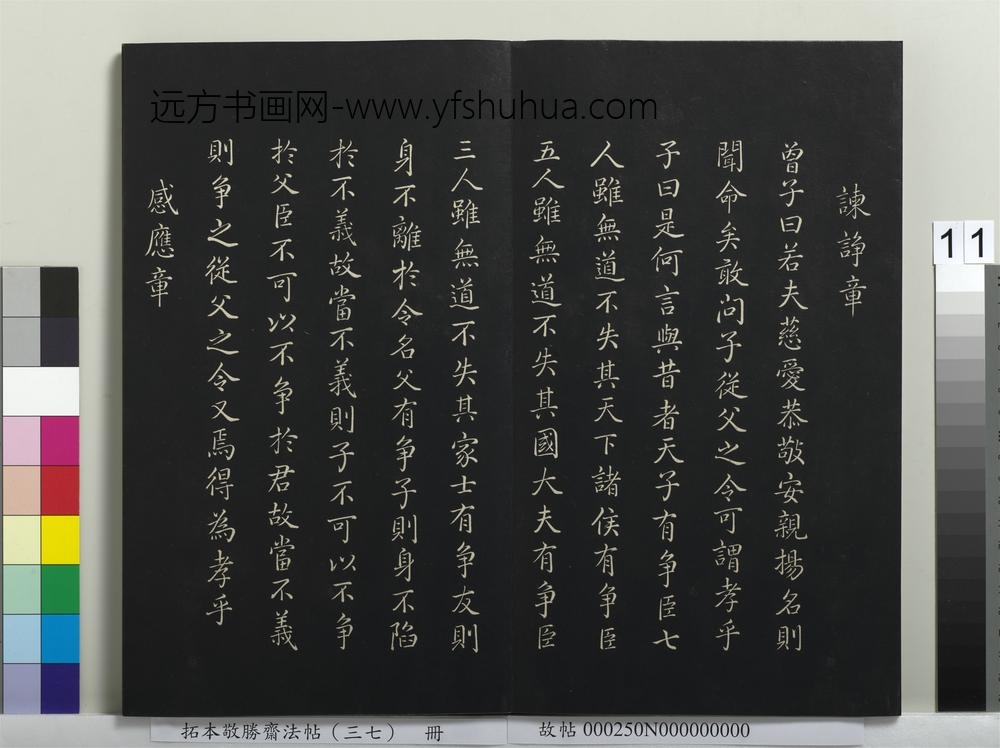 远方书画网-www.yfshuhua.com
諫諍章
曾子曰若夫慈愛恭敬安親揚名則
聞命矣敢问子從父之令可謂孝乎
子曰是何言與昔者天子有争臣七
人雖無道不失其天下諸侯有争臣
五人雖無道不失其國大夫有争臣
三人雖無道不失其家士有争友則
身不離於令名父有争子則身不陷
於不義故當不義則子不可以不争
於父臣不可以不争於君故當不義
則争之從父之令又焉得為孝乎
感應章
11
拓本敬勝齋法帖（三七） 冊
故帖 000250N000000000